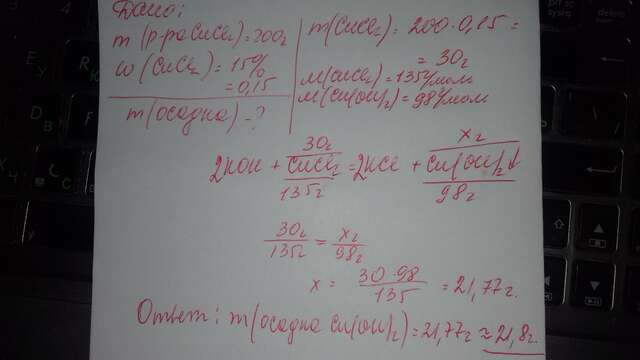 Дано:
m(р-ра CuCl₂)=200г
ω(CuCl₂)=15%
=0,15
m(осадка)-?
m(CuCl₂)=200·0,15=
=30г
M(CuCl₂)=135г/моль
M(Cu(OH)₂)=98г/моль
30г xг
2KOH + CuCl₂ = 2KCl + Cu(OH)₂↓
135г 98г
30г/135г = xг/98г
x = 30·98/135 = 21,77г.
Ответ: m(осадка Cu(OH)₂)=21,77г≈21,8г.